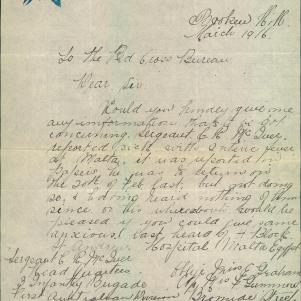 Broken Hill
March 1916.
To the Red Cross Bureau
Dear Sir
Would you kindly give me
any information that is to be got
concerning Sergeant E R McGuer
reported sick with enteric fever
at Malta, it was reported in
papers he was to return on
the 20th of Feb last, but not doing
so, & I being heard nothing of him
since or his whereabouts would be
pleased if you could give same
anxious last heard of Block
St Andrews Hospital Malta Egypt
Sergeant E R McGuer
Head Quarters
Infantry Brigade
First Australian
Graham
Bromide